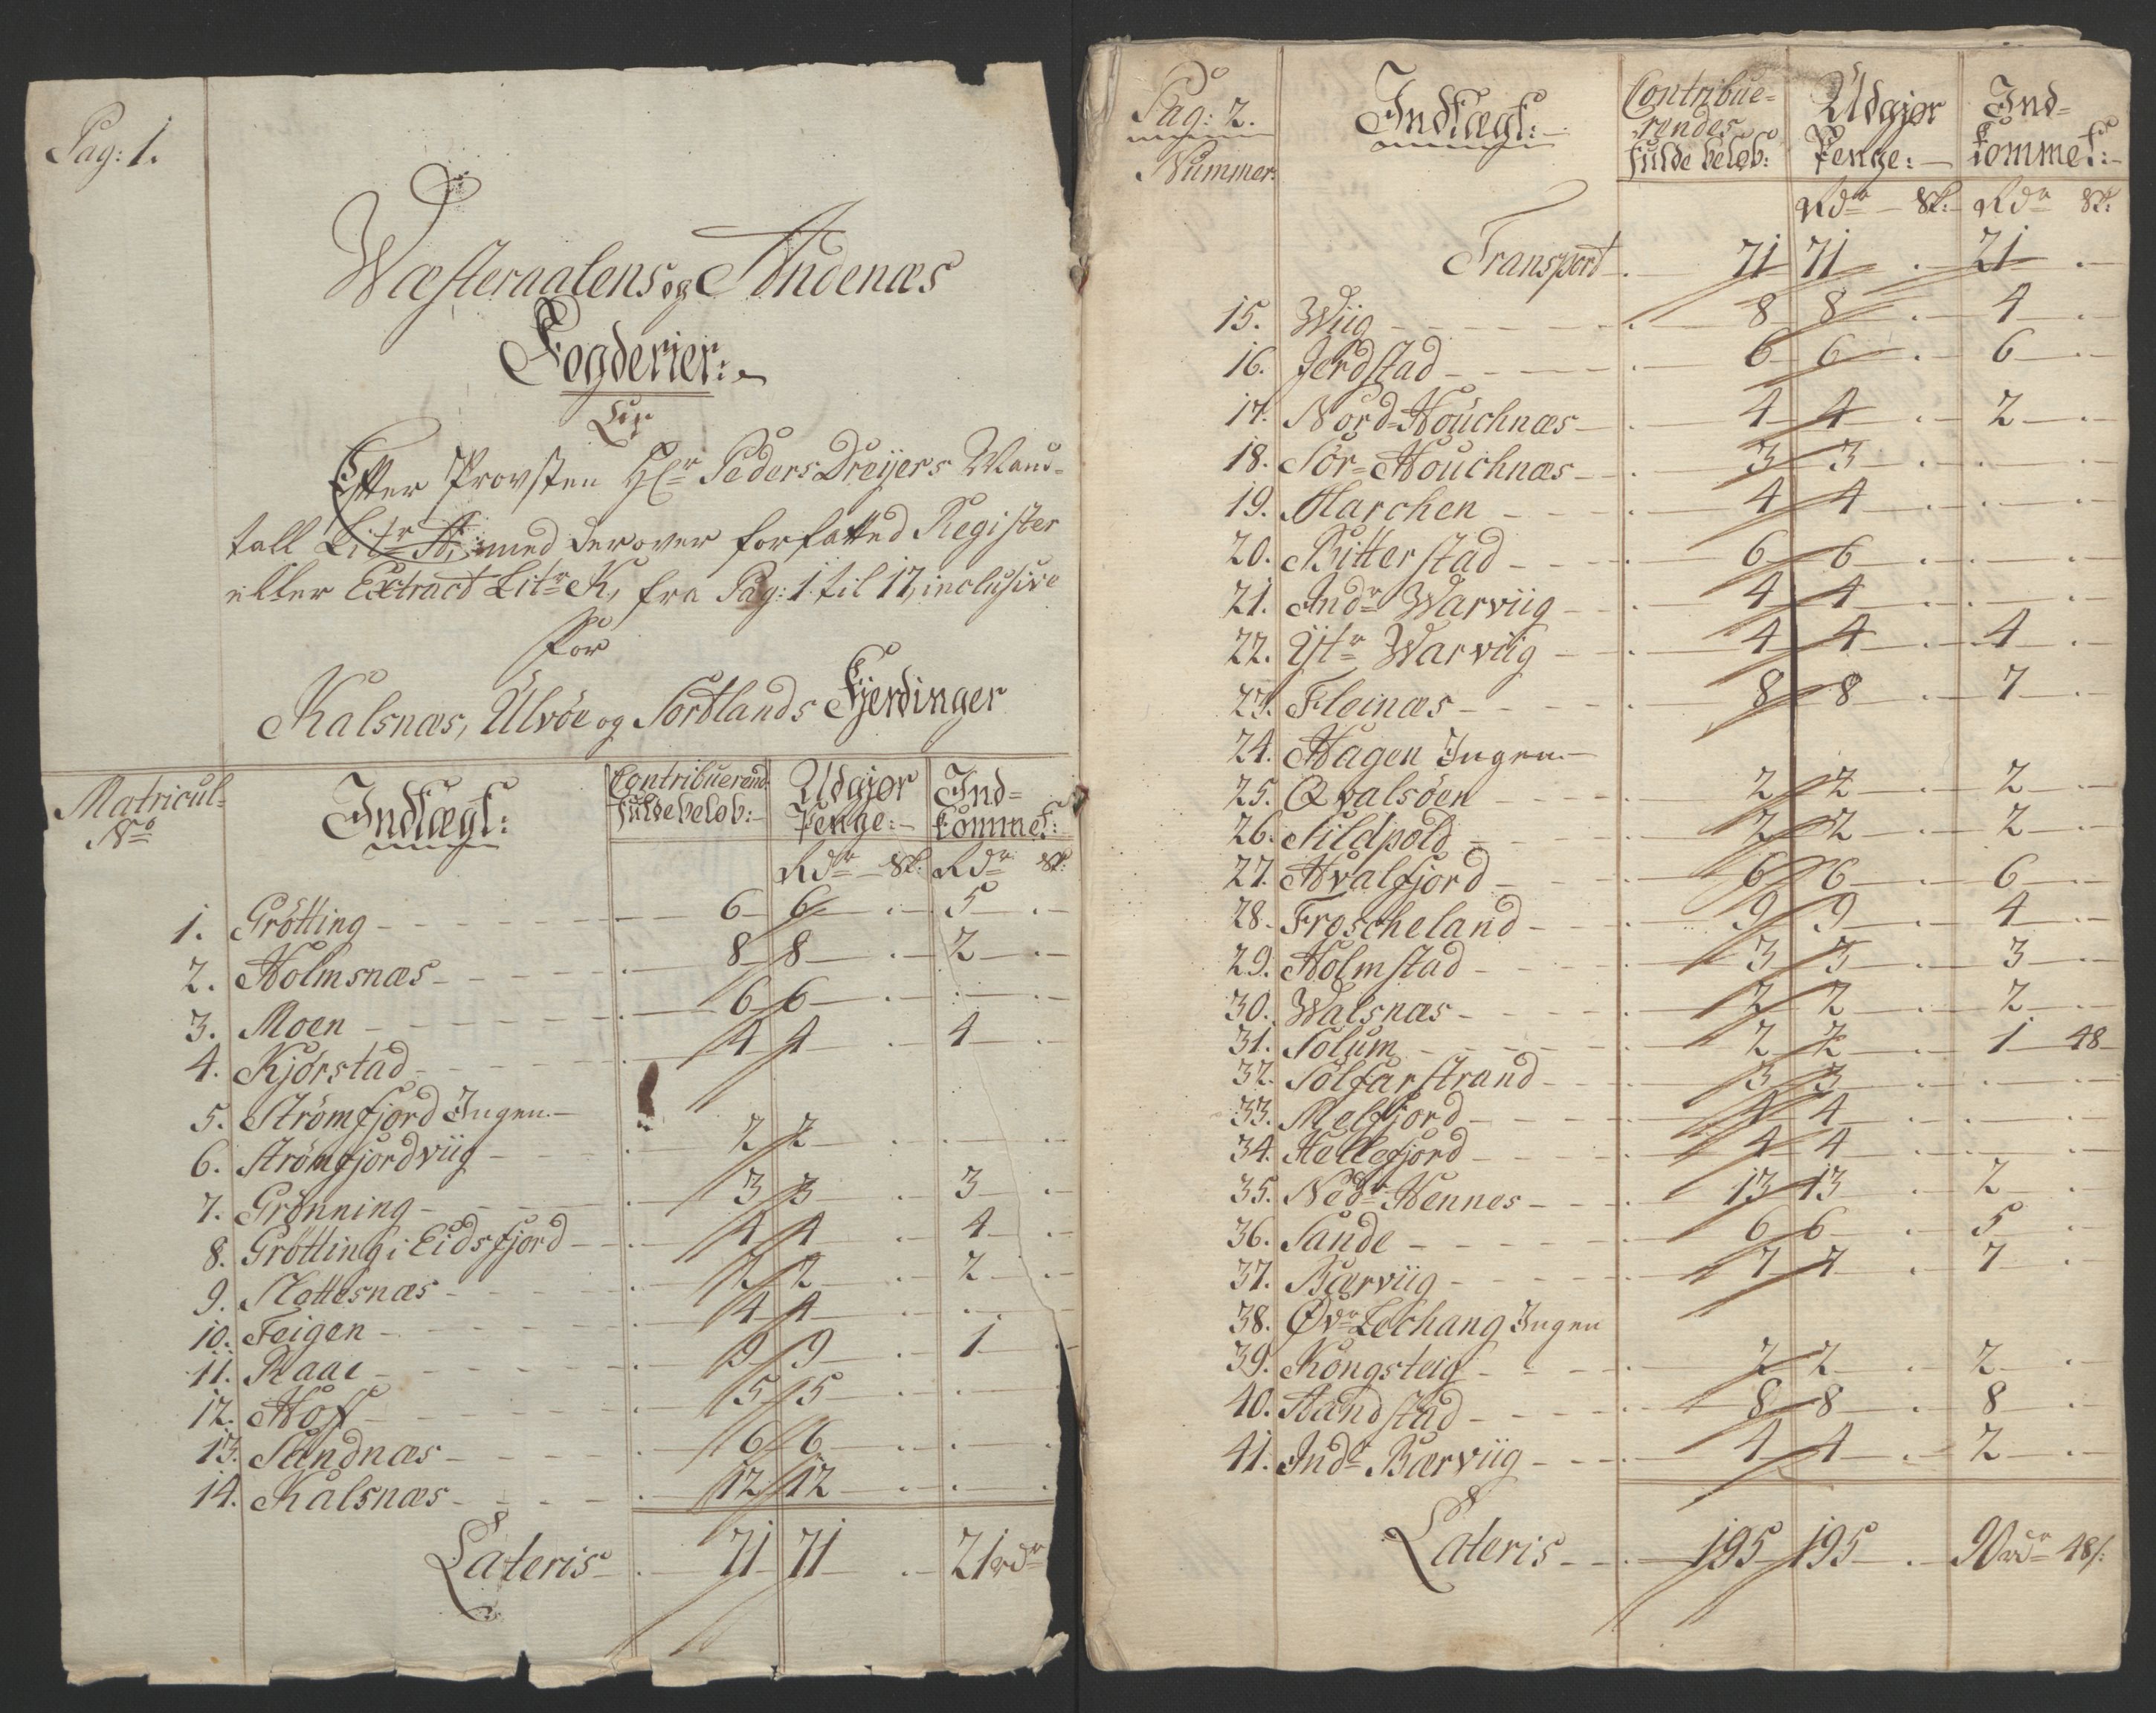 Pag: 1.
Wæsteraalens og Andenæs
Fogderier:
Efter Provsten Hr Peders Dreyers Mand-
tall Litr A, med derover forfatted Register
eller Extract Litr K, fra Pag: 1 til 17, inclusive
For
Kalsnæs, Ulvöe og Sortlands Fjerdinger
Matricul No Indlægt: Contribuerend fulde beløb: Udgjør Penge: Ind-kommet:
Rdr ß: Rdr ß:
1. Grötting 6 6 . 5 .
2. Holmsnæs 8 8 . 2 .
3. Moen 6 6 . . .
4. Kjörstad 4 4 . 4 .
5. Strömfjord Ingen
6. Strömfjordviig 2 2 . . .
7. Grönning 3 3 . 3 .
8. Grötting i Eidsfjord 4 4 . 4 .
9. Slottesnæs 2 2 . 2 .
10. Feigen 4 4 . . .
11. Raae 9 9 . 1 .
12. Hoff 5 5 . . .
13. Sandnæs 6 6 . . .
14. Kalsnæs 12 12 . . .
Lateris 71 71 . 21 rdr
Pag: 2.
Nummer: Indlægt: Contribue-rendes fulde beløb: Udgjør Penge: Ind-kommet:
Rdr ß: Rdr ß:
Transport 71 71 . 21 .
15. Wiig 8 8 . 4 .
16. Jerdstad 6 6 . 6 .
17. Nord-Houchnæs 4 4 . 2 .
18. Sör-Houchnæs 3 3 . . .
19. Marchen 4 4 . . .
20. Bitterstad 6 6 . . .
21. Indr Warviig 4 4 . . .
22. Ytr Warviig 4 4 . 4 .
23. Fleinæs 8 8 . 7 .
24. Hagen Ingen
25. Qvalsöen 2 2 . 2 .
26. Sildpold 2 2 . 2 .
27. Hvalfjord 6 6 . 6 .
28. Froscheland 9 9 . 4 .
29. Holmstad 3 3 . 3 .
30. Walsnæs 2 2 . 2 .
31. Solum 2 2 . 1 48
32. Solfarstrand 3 3 . . .
33. Melfjord 4 4 . . .
34. Hellefjord 4 4 . . .
35. Nedr Hennes 13 13 . 2 .
36. Sande 6 6 . 5 .
37. Bærviig 7 7 . 7 .
38. Ødr Lechang Ingen
39. Kongsteig 2 2 . 2 .
40. Aandstad 8 8 . 8 .
41. Indr Bærviig 4 4 . 2 .
Lateris 195 195 . 90 rdr 48ß: